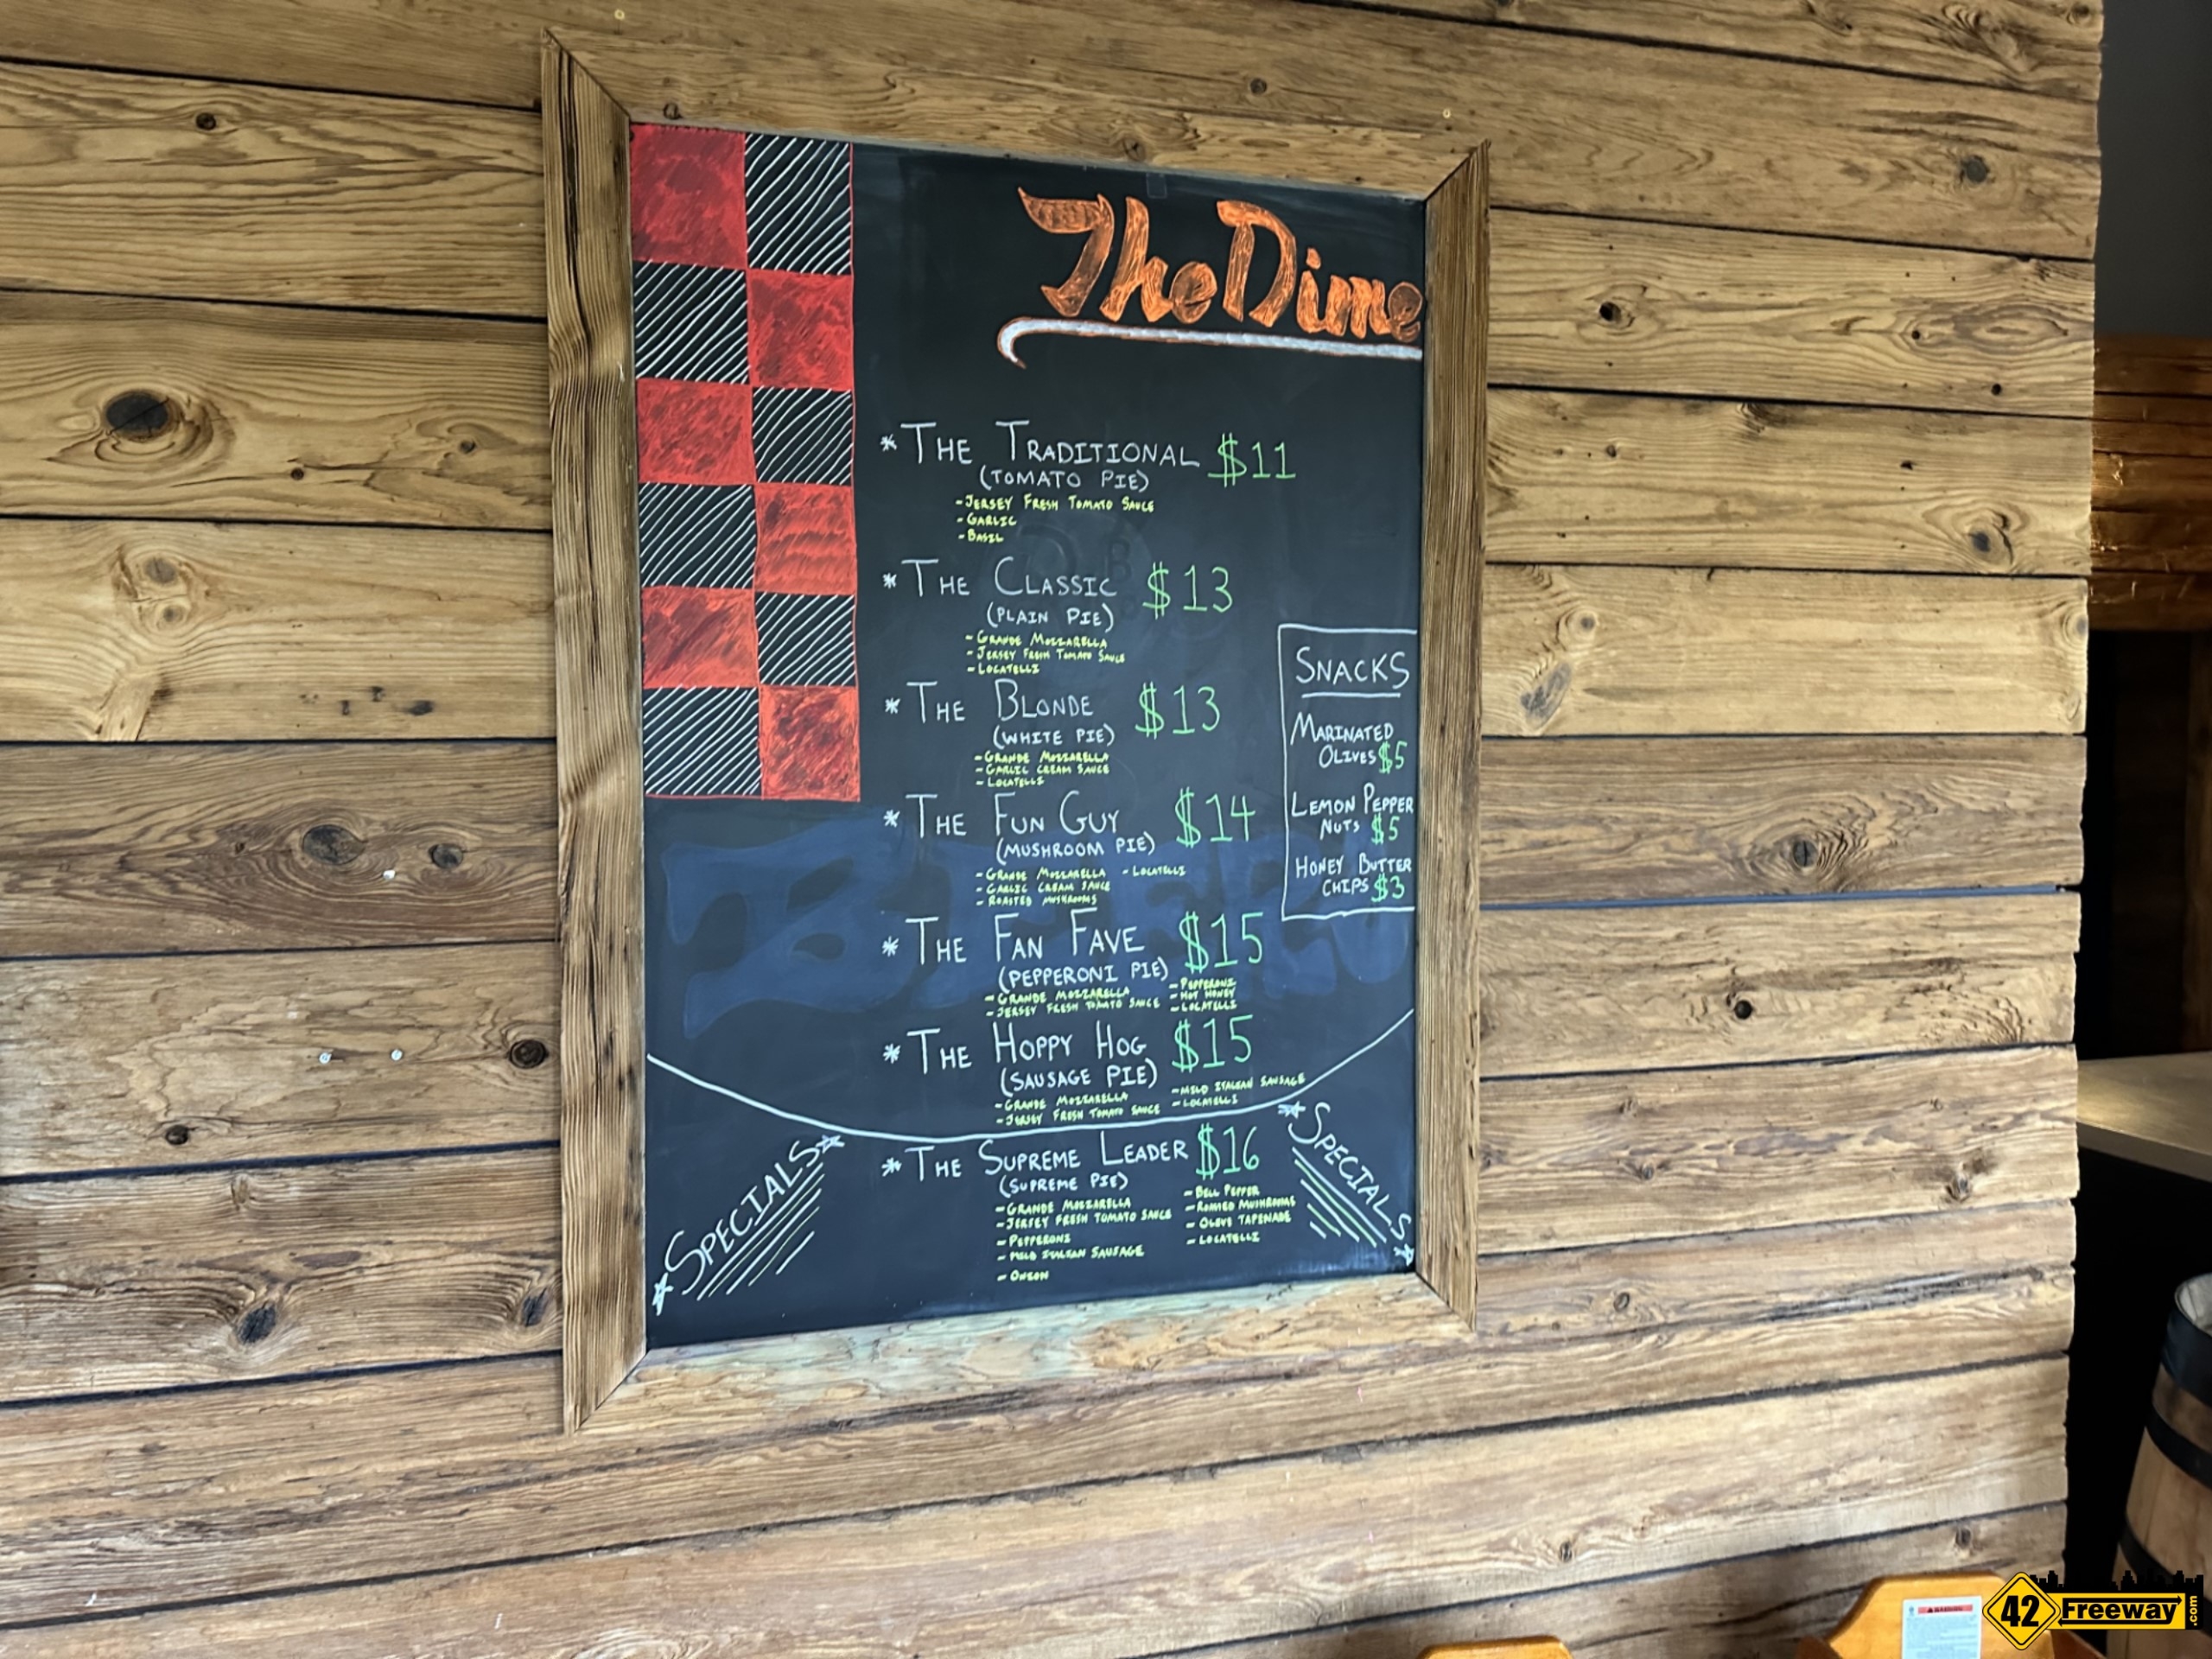 The Dime
* THE TRADITIONAL $11
(TOMATO PIE)
- JERSEY FRESH TOMATO SAUCE
- GARLIC
- BASIL
* THE CLASSIC $13
(PLAIN PIE)
- GRANDE MOZZARELLA
- JERSEY FRESH TOMATO SAUCE
- LOCATELLI
* THE BLONDE $13
(WHITE PIE)
- GRANDE MOZZARELLA
- GARLIC CREAM SAUCE
- LOCATELLI
* THE FUN GUY $14
(MUSHROOM PIE)
- GRANDE MOZZARELLA - LOCATELLI
- GARLIC CREAM SAUCE
- ROASTED MUSHROOMS
* THE FAN FAVE $15
(PEPPERONI PIE)
- GRANDE MOZZARELLA
- JERSEY FRESH TOMATO SAUCE
- PEPPERONI
- HOT HONEY
- LOCATELLI
* THE HOPPY HOG $15
(SAUSAGE PIE)
- GRANDE MOZZARELLA
- JERSEY FRESH TOMATO SAUCE
- MILD ITALIAN SAUSAGE
- LOCATELLI
SNACKS
MARINATED
OLIVES $5
LEMON PEPPER
NUTS $5
HONEY BUTTER
CHIPS $3
SPECIALS
* THE SUPREME LEADER $16
(SUPREME PIE)
- GRANDE MOZZARELLA
- JERSEY FRESH TOMATO SAUCE
- PEPPERONI
- MILD ITALIAN SAUSAGE
- ONION
- BELL PEPPER
- ROASTED MUSHROOMS
- OLIVE TAPENADE
- LOCATELLI
SPECIALS
42 Freeway .com